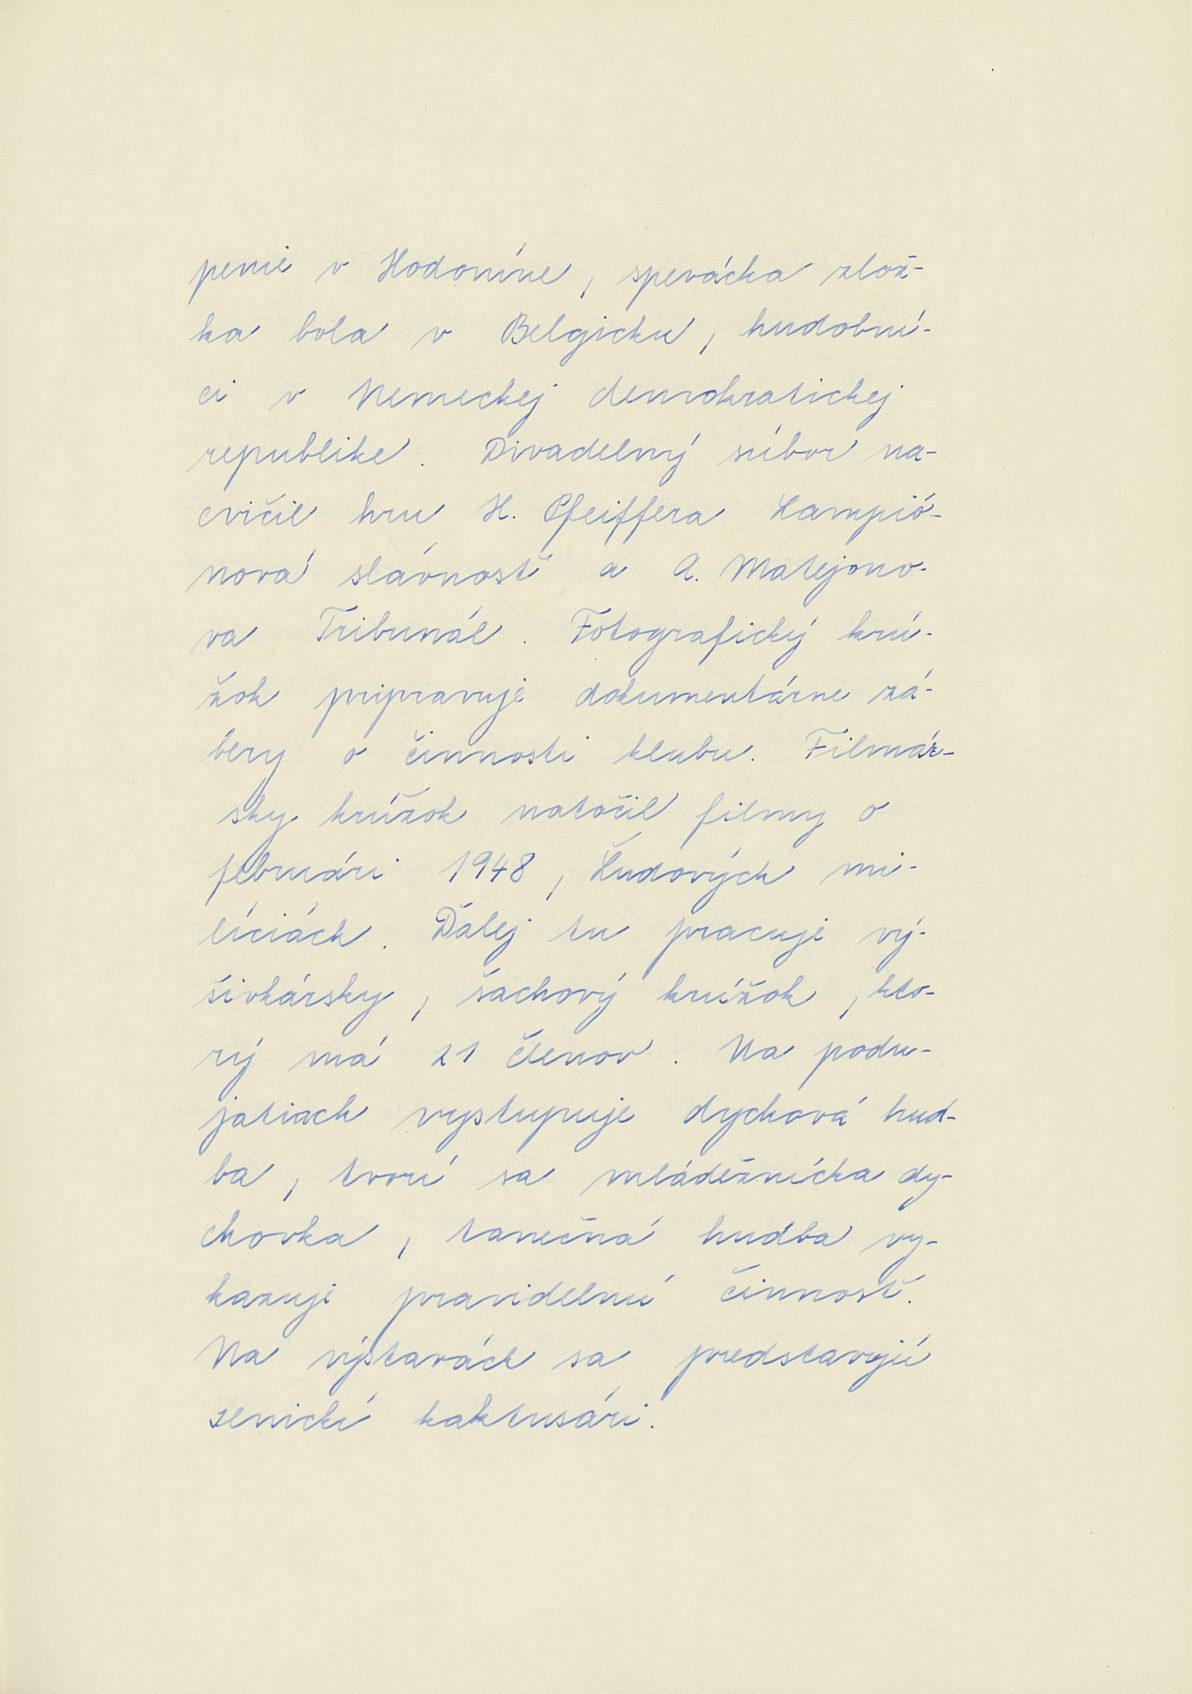 penie v Hodoníne, spevácka zlož-
ka bola v Belgicku, hudobní-
ci v Nemeckej demokratickej
republike. Divadelný súbor na-
cvičil hru H. Pfeiffera Lampió-
nová slávnosť a A. Matejono-
va Tribunál. Fotografický krú-
žok pripravuje dokumentárne zá-
bery o činnosti klubu. Filmár-
sky krúžok natočil filmy o
februári 1948, Ľudových mi-
líciách. Ďalej tu pracuje vý-
šivkársky, šachový krúžok, kto-
rý má 21 členov. Na podu-
jatiach vystupuje dychová hud-
ba, tvorí sa mládežnícka dy-
chovka, tanečná hudba vy-
kazuje pravidelnú činnosť.
Na výstavách sa predstavujú
senickí kaktusári.